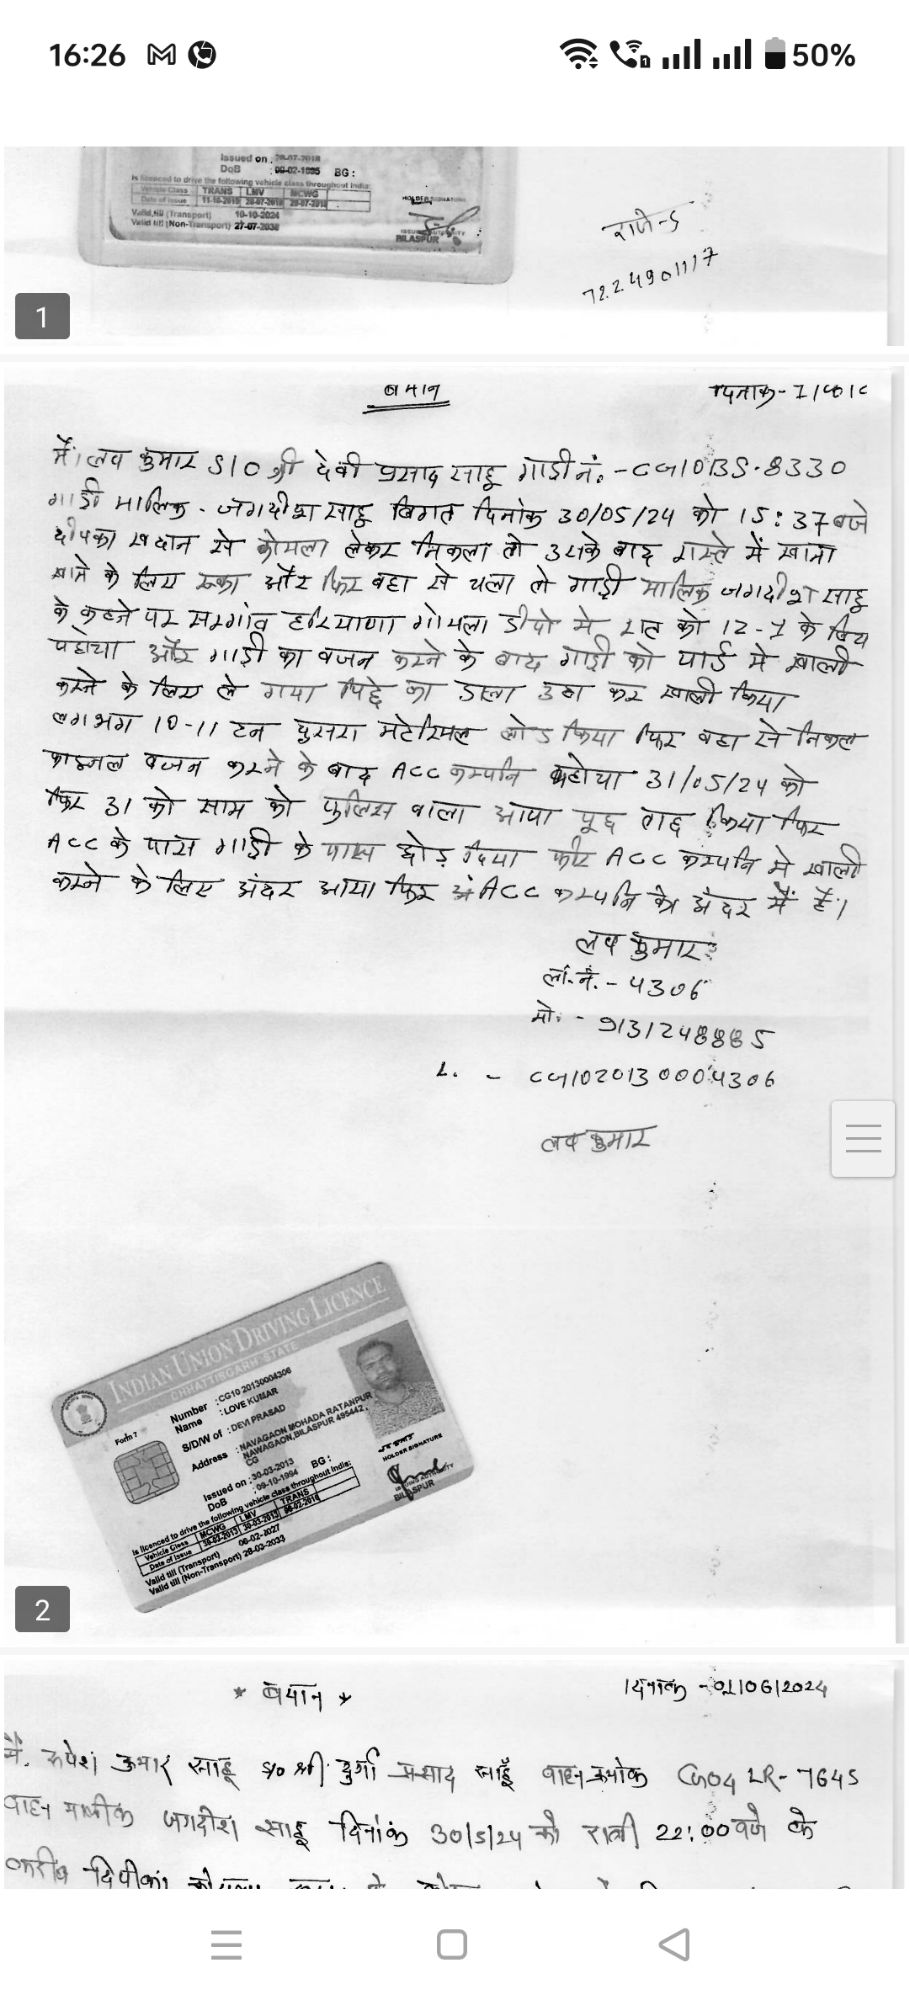 16:26
50%
Issued on : 28-07-2018
DoB : 09-02-1995 BG :
is licenced to drive the following vehicle class throughout India:
Vehicle Class TRANS LMV MCWG
Date of Issue 11-10-2019 28-07-2018 28-07-2018
HOLDER SIGNATURE
Valid till (Transport) 10-10-2024
Valid till (Non-Transport) 27-07-2038
BILASPUR
7224901117
1
बयान
दिनांक-
मैं लव कुमार S/O श्री देवी प्रसाद साहू गाडी नं. - CG10BS.8330
गाडी मालिक - जगदीश साहू विगत दिनांक 30/05/24 को 15:37 बजे
दीपका खदान से कोयला लेकर निकला तो उसके बाद रास्ते में खाना
खाने के लिए रूका और फिर वहा से चला तो गाडी मालिक जगदीश साहू
के कहने पर सरगांव हरियाणा कोयला डीपो मे रात को 12-1 के बिच
पहोचा और गाडी का वजन करने के बाद गाडी को यार्ड मे खाली
करने के लिए ले गया पिछे का डाला उठा कर खाली किया
लगभग 10-11 टन दुसरा मटेरियल लोड किया फिर वहा से निकल
फाइनल वजन करने के बाद ACC कम्पनि पहोचा 31/05/24 को
फिर 31 को साम को पुलिस वाला आया पूछ ताछ किया फिर
ACC के पास गाडी के पास छोड़ दिया फिर ACC कम्पनि मे खाली
करने के लिए अंदर आया फिर ACC कम्पनि के अंदर में हैं।
लव कुमार
ला.नं. - 4306
मो. - 9131248885
L. - CG1020130004306
लव कुमार
INDIAN UNION DRIVING LICENCE
CHHATTISGARH STATE
Form 7
Number : CG10 20130004306
Name : LOVE KUMAR
S/D/W of : DEVI PRASAD
Address : NAVAGAON MOHADA RATANPUR
NAWAGAON,BILASPUR 495442,
CG
Issued on : 30-03-2013
DoB : 09-10-1994 BG :
is licenced to drive the following vehicle class throughout India:
Vehicle Class MCWG LMV TRANS
Date of Issue 30-03-2013 30-03-2013
HOLDER SIGNATURE
ISSUING AUTHORITY
BILASPUR
Valid till (Transport) 06-02-2027
Valid till (Non-Transport) 28-03-2033
2
* बयान *
दिनांक - 01/06/2024
मैं. रुपेश कुमार साहू S/o श्री दुर्गा प्रसाद साहूँ वाहन क्रमांक CG04 LR-7645
वाहन मालीक जगदीश साहू दिनांक 30/5/24 को रात्री 22:00 बजे के
करीब दिपीका